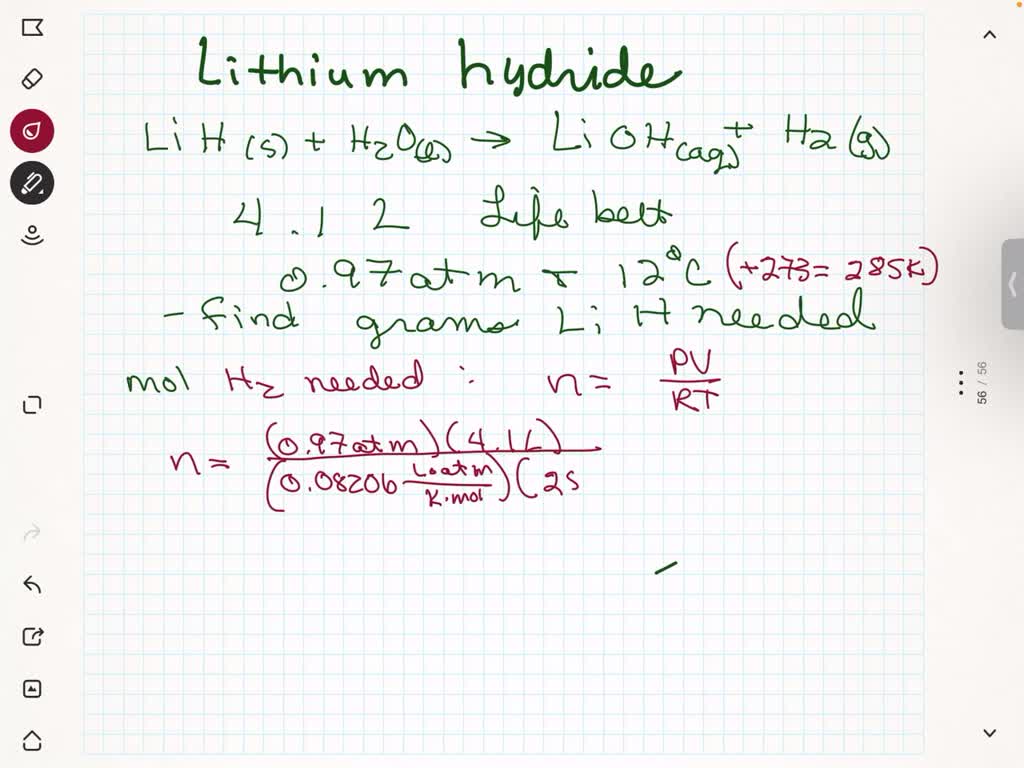 Lithium hydride
LiH(s) + H2O(l) → LiOH(aq) + H2(g)
4.1 L Life belt
0.97 atm & 12°C (+273 = 285K)
- find grams LiH needed
mol H2 needed : n = PV/RT
n = (0.97 atm)(4.1L)
(0.08206 L·atm/K·mol)(28
56 / 56